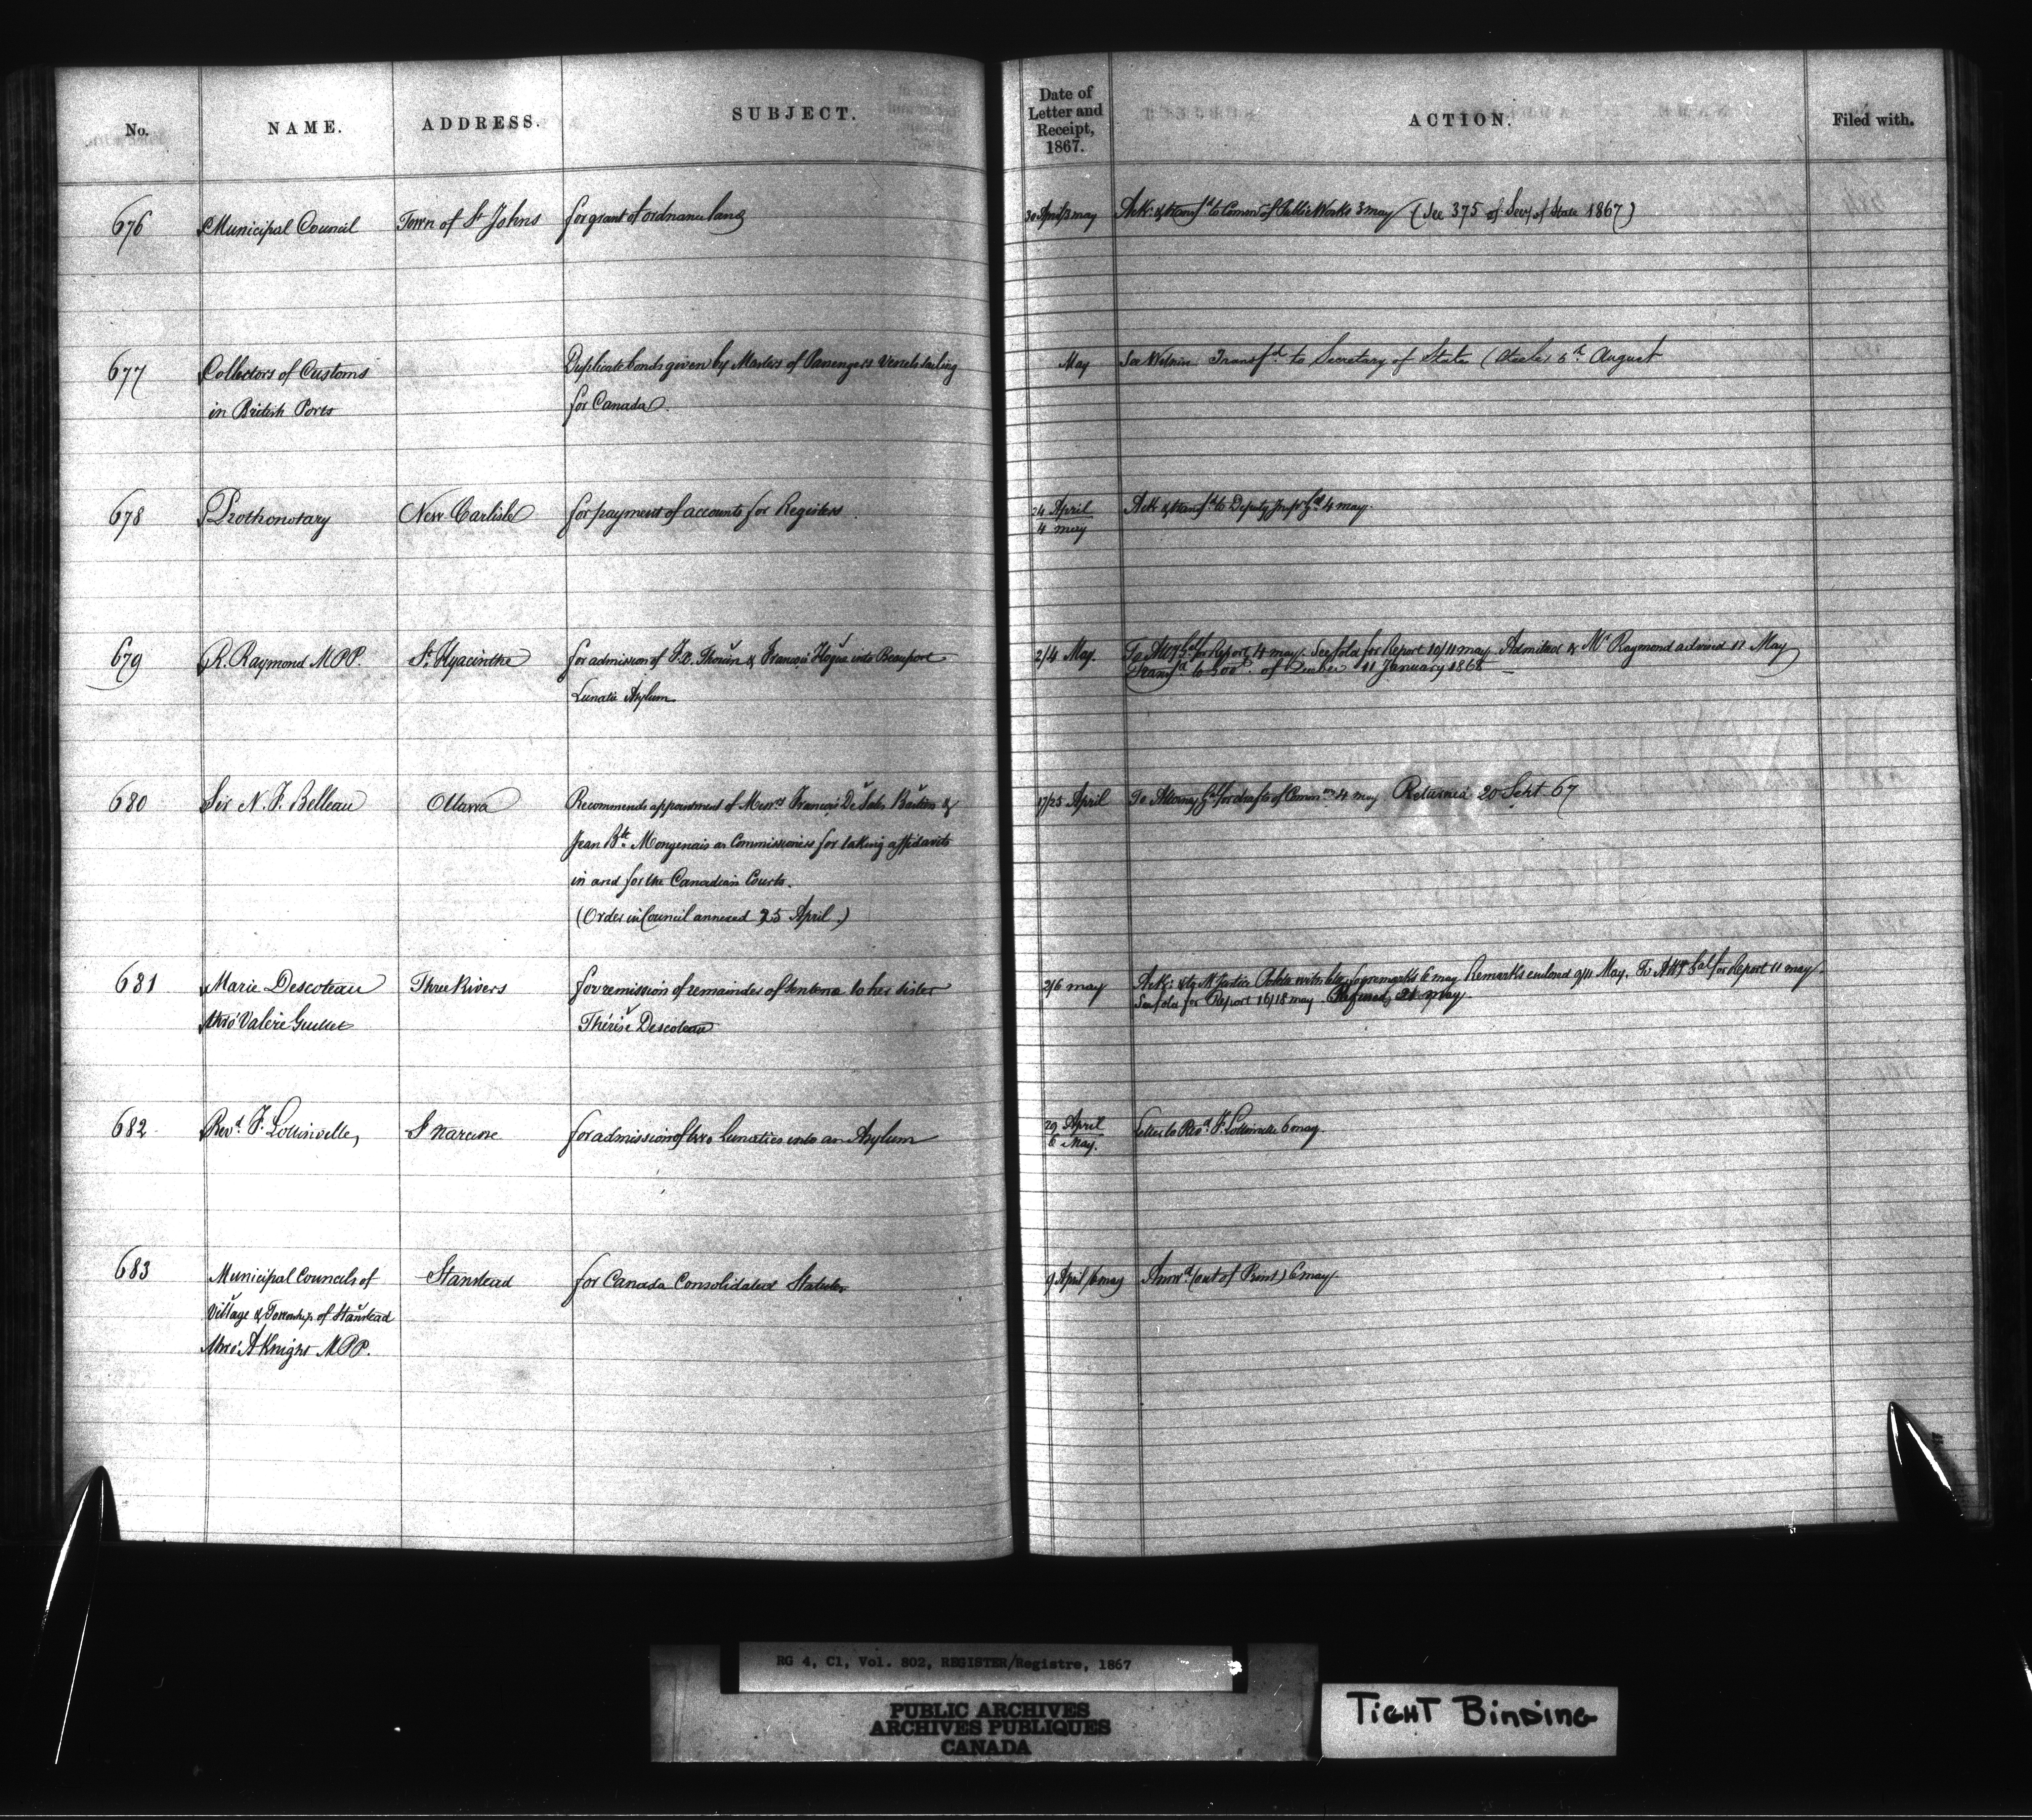 No. NAME. ADDRESS. SUBJECT. Date of Letter and Receipt, 1867. ACTION. Filed with.
676 Municipal Council Town of St Johns for grant of ordnance land 30 April/3 may Ack: & transfd to Commr of Public Works 3 may (See 375 of Secy of State 1867)
677 Collectors of Customs Duplicate bonds given by Masters of Passengers Vessels sailing May See Within Transfd to Secretary of State 5th August
in British Ports for Canada.
678 Prothonotary New Carlisle for payment of accounts for Registers 24 April Ack & transfd to Deputy Inspr Gl 4 may.
4 may
679 R. Raymond M.P.P. St Hyacinthe for admission of F.X. & François Hogue into Beauport 2/4 May. To Atty Gal for Report 4 may. See fold for Report 10/11 may Admitted & Mr Raymond advised 11 May
Lunatic Asylum Transfd to of Quebec 11 January 1868
680 Sir N. F. Belleau Ottawa Recommends appointment of Messrs François De Sales & 17/25 April To Attorney Gl for drafts of Commns 4 may Returned 20 Sept 67
Jean Bte Mongenais as Commissioners for taking affidavits
in and for the Canadian Courts.
(Order in Council annexed 25 April.)
681 Marie Descoteau Three Rivers for remission of remainder of sentence to her sister 2/6 may Ack: & to Mr Justice Polette with for remarks 6 may Remarks enclosed 9/11 May. To Atty Gal for Report 11 may.
thro' Valère Guillet Thérèse Descoteau See fold for Report 16/18 may Refused, 21 may.
682 Revd F. Lottinville, St Narcisse for admission of two Lunatics into an Asylum 29 April Letter to Revd F. Lottinville 6 may.
6 May.
683 Municipal Councils of Stanstead for Canada Consolidated Statutes 9 April/6 may Answd (out of Print) 6 may.
Village & Township of Stanstead
thro' A Knight M.P.P.
RG 4, C1, Vol. 802, REGISTER/Registre, 1867
PUBLIC ARCHIVES
ARCHIVES PUBLIQUES
CANADA
TIGHT BINDING